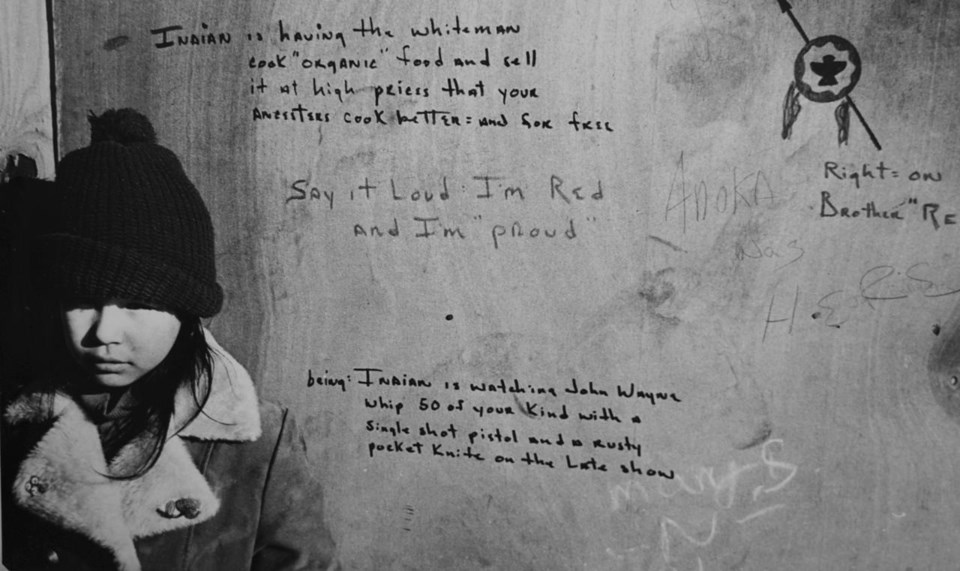 INDIAN is having the whiteman
cook "ORGANIC" food and sell
it at high prices that your
ANCESTERS COOK bETTER: AND FOR FREE
SAY it Loud: I'm Red
AND I'm "pRoud"
ANOKA
was
HERE
Right = ON
BROTHER "RE
being: INDIAN is watching John Wayne
whip 50 of your Kind with a
single shot pistol and a Rusty
pocket Knife on the Late show